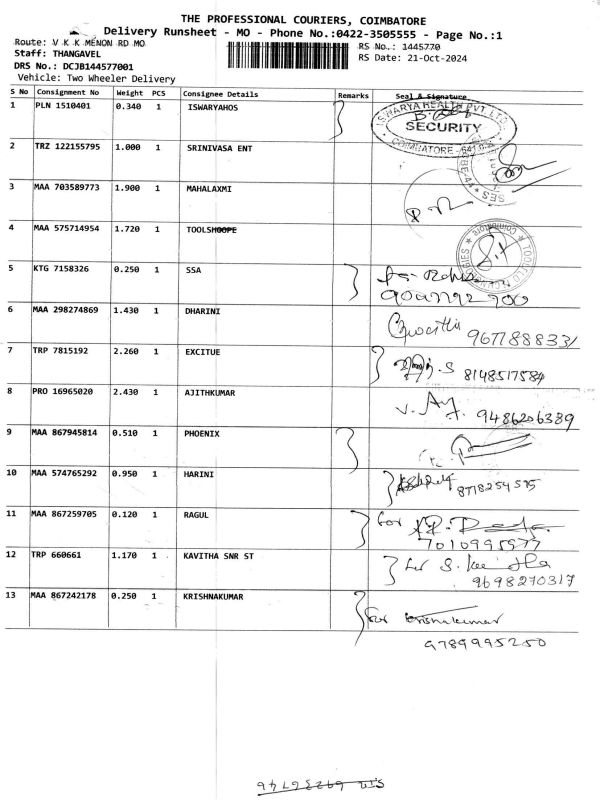 THE PROFESSIONAL COURIERS, COIMBATORE
Delivery Runsheet - MO - Phone No.:0422-3505555 - Page No.:1
Route: V K K MENON RD MO
RS No.: 1445770
Staff: THANGAVEL
RS Date: 21-Oct-2024
DRS No.: DCJB144577001
Vehicle: Two Wheeler Delivery
S No Consignment No Weight PCS Consignee Details Remarks Seal & Signature
1 PLN 1510401 0.340 1 ISWARYAHOS
ISWARYA HEALTH PVT LTD
SECURITY
COIMBATORE
2 TRZ 122155795 1.000 1 SRINIVASA ENT
3 MAA 703589773 1.900 1 MAHALAXMI
4 MAA 575714954 1.720 1 TOOLSHOOPE
5 KTG 7158326 0.250 1 SSA
6 MAA 298274869 1.430 1 DHARINI
9677888331
7 TRP 7815192 2.260 1 EXCITUE
8148517584
8 PRO 16965020 2.430 1 AJITHKUMAR
9486206339
9 MAA 867945814 0.510 1 PHOENIX
10 MAA 574765292 0.950 1 HARINI
8778254575
11 MAA 867259705 0.120 1 RAGUL
for
7010995977
12 TRP 660661 1.170 1 KAVITHA SNR ST
9698270317
13 MAA 867242178 0.250 1 KRISHNAKUMAR
for Krishnakumar
9789995250